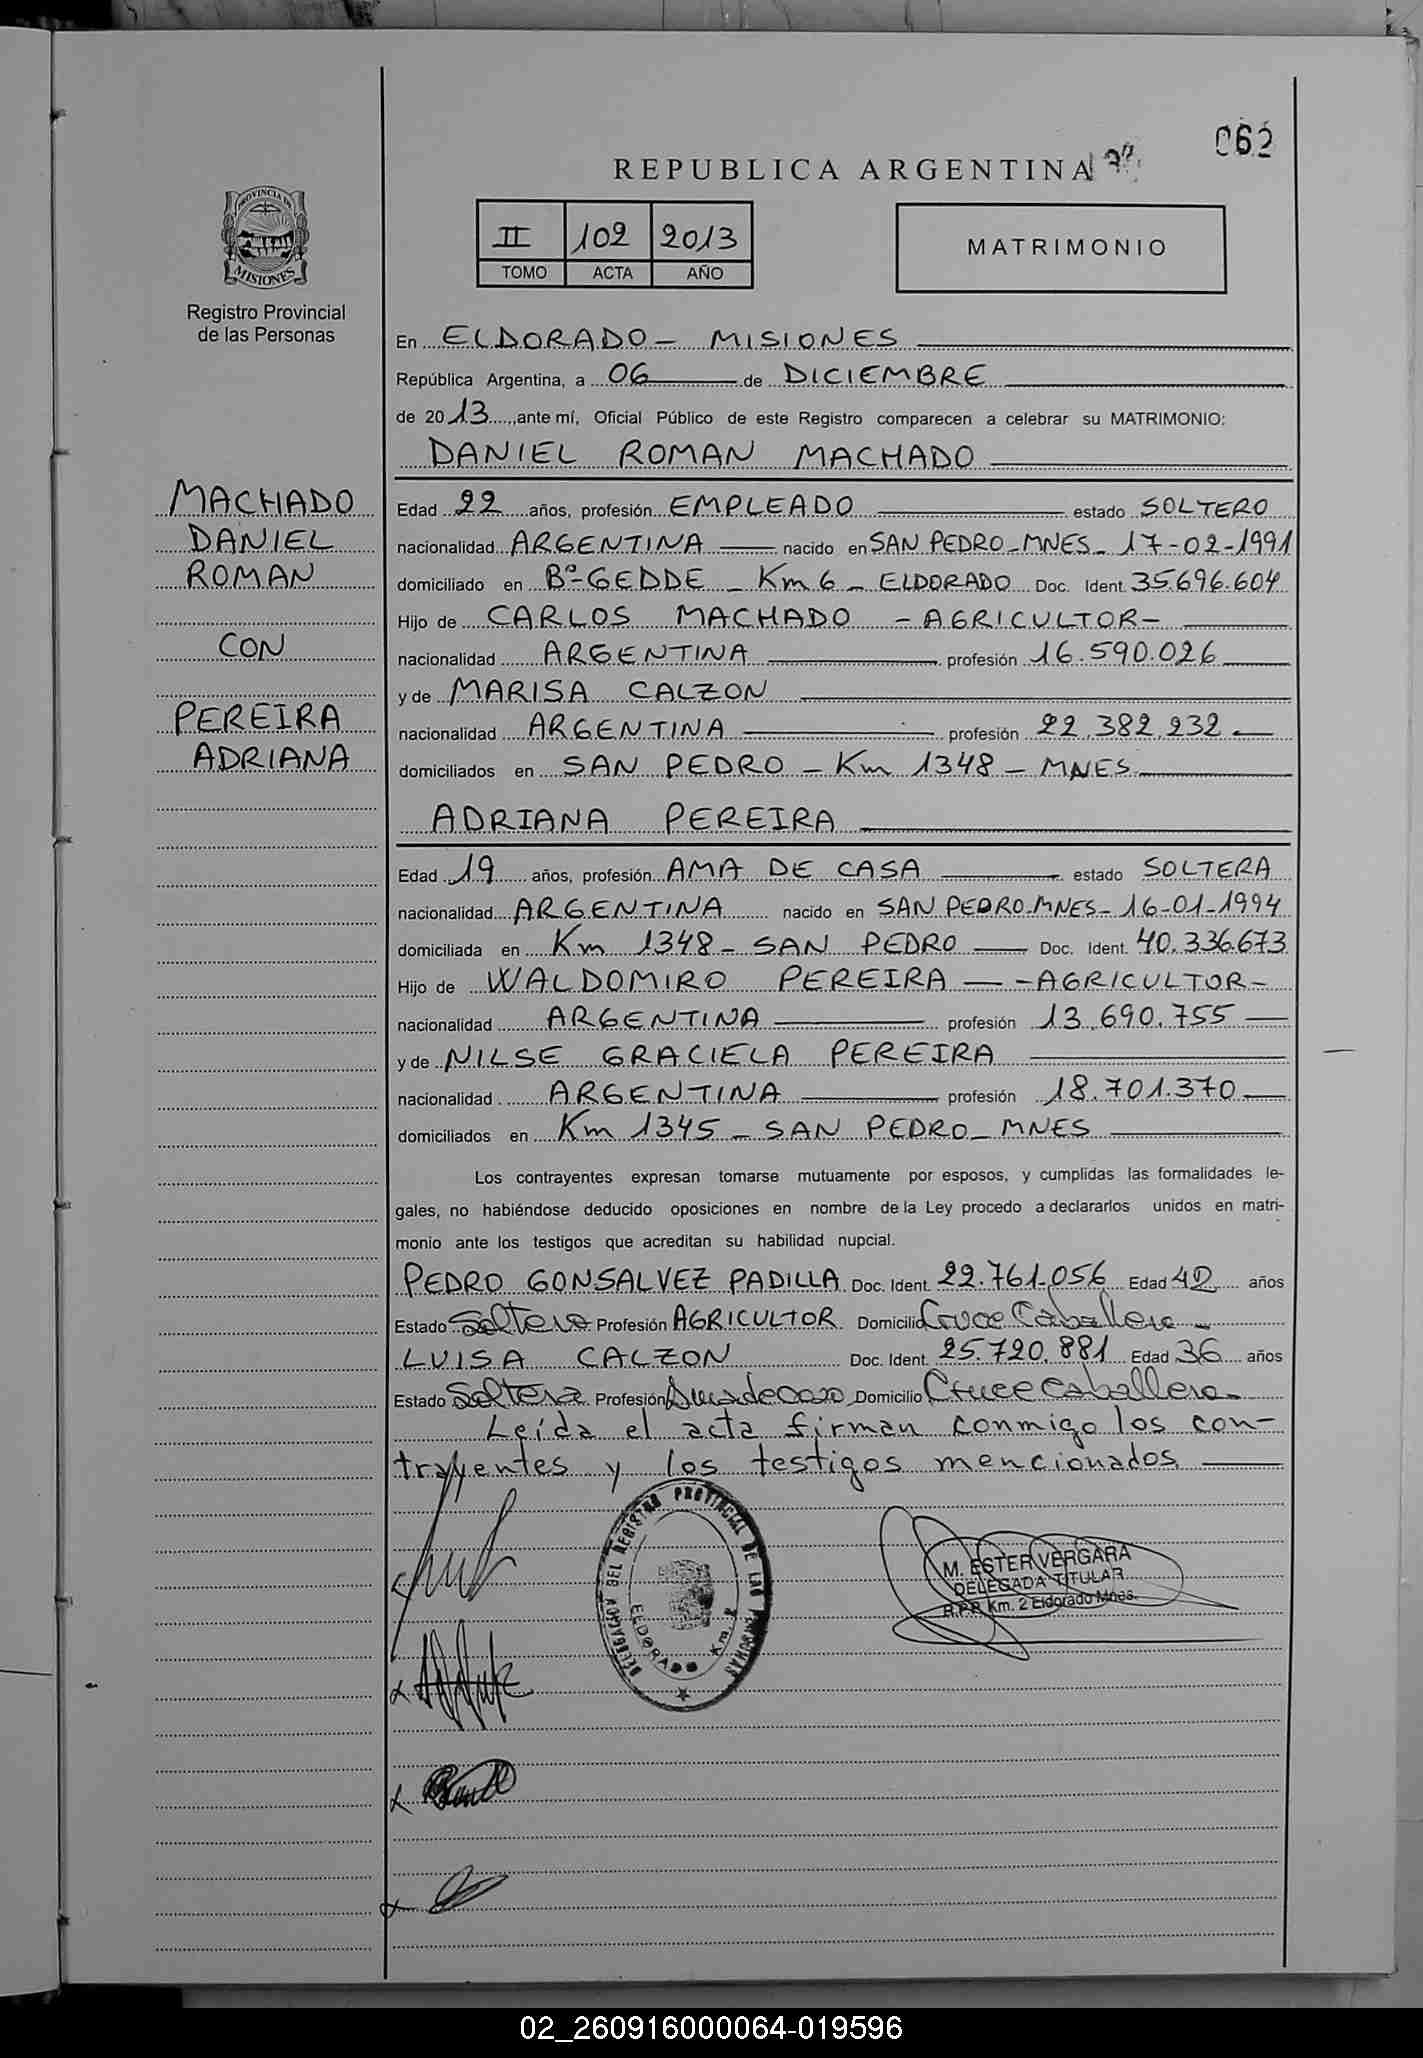 062
REPUBLICA ARGENTINA
II 102 2013
TOMO ACTA AÑO
MATRIMONIO
PROVINCIA DE
MISIONES
Registro Provincial
de las Personas
En ELDORADO - MISIONES
República Argentina, a 06 de DICIEMBRE
de 2013, ante mí, Oficial Público de este Registro comparecen a celebrar su MATRIMONIO:
DANIEL ROMAN MACHADO
MACHADO
DANIEL
ROMAN
CON
PEREIRA
ADRIANA
Edad 22 años, profesión EMPLEADO estado SOLTERO
nacionalidad ARGENTINA nacido en SAN PEDRO-MNES- 17-02-1991
domiciliado en Bº-GEDDE - Km 6 - ELDORADO Doc. Ident. 35.696.604
Hijo de CARLOS MACHADO - AGRICULTOR-
nacionalidad ARGENTINA profesión 16.590.026
y de MARISA CALZON
nacionalidad ARGENTINA profesión 22.382.232
domiciliados en SAN PEDRO - Km 1348 - MNES
ADRIANA PEREIRA
Edad 19 años, profesión AMA DE CASA estado SOLTERA
nacionalidad ARGENTINA nacido en SAN PEDRO-MNES- 16-01-1994
domiciliada en Km 1348- SAN PEDRO Doc. Ident. 40.336.673
Hijo de WALDOMIRO PEREIRA - AGRICULTOR-
nacionalidad ARGENTINA profesión 13.690.755
y de NILSE GRACIELA PEREIRA
nacionalidad ARGENTINA profesión 18.701.370
domiciliados en Km 1345 - SAN PEDRO - MNES
Los contrayentes expresan tomarse mutuamente por esposos, y cumplidas las formalidades le-
gales, no habiéndose deducido oposiciones en nombre de la Ley procedo a declararlos unidos en matri-
monio ante los testigos que acreditan su habilidad nupcial.
PEDRO GONSALVEZ PADILLA Doc. Ident. 22.761.056 Edad 42 años
Estado Soltero Profesión AGRICULTOR Domicilio Cruce Caballero
LUISA CALZON Doc. Ident. 25.720.881 Edad 36 años
Estado Soltera Profesión Ama de casa Domicilio Cruce Caballero
Leída el acta firman conmigo los con-
trayentes y los testigos mencionados
DELEGACION DEL REGISTRO PROVINCIAL DE LAS PERSONAS
ELDORADO Km. 2
M. ESTER VERGARA
DELEGADA TITULAR
R.P.P. Km. 2 Eldorado Mnes.
02_260916000064-019596